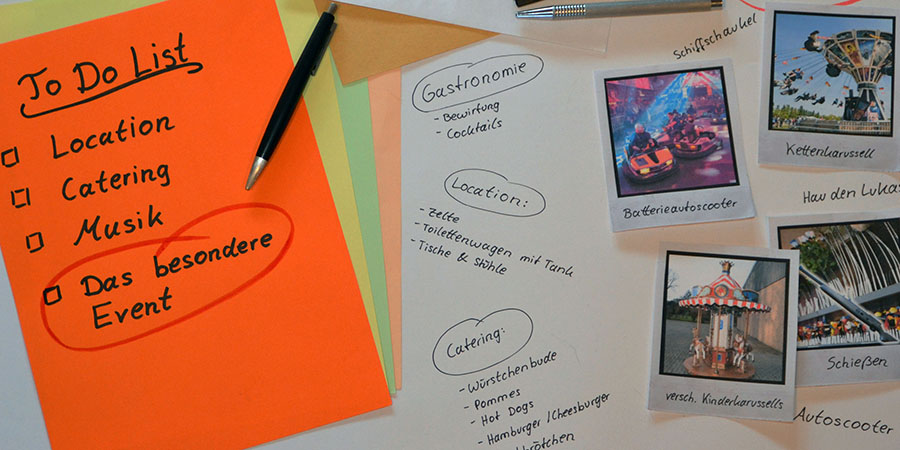 To Do List
Location
Catering
Musik
Das besondere
Event
Gastronomie
- Bewirtung
- Cocktails
Location:
- Zelte
- Toilettenwagen mit Tank
- Tische & Stühle
Catering:
- Würstchenbude
- Pommes
- Hot Dogs
- Hamburger/Cheesburger
Schiffschaukel
Batterieautoscooter
Kettenkarussell
Hau den Lukas
versch. Kinderkarussells
Schießen
Autoscooter